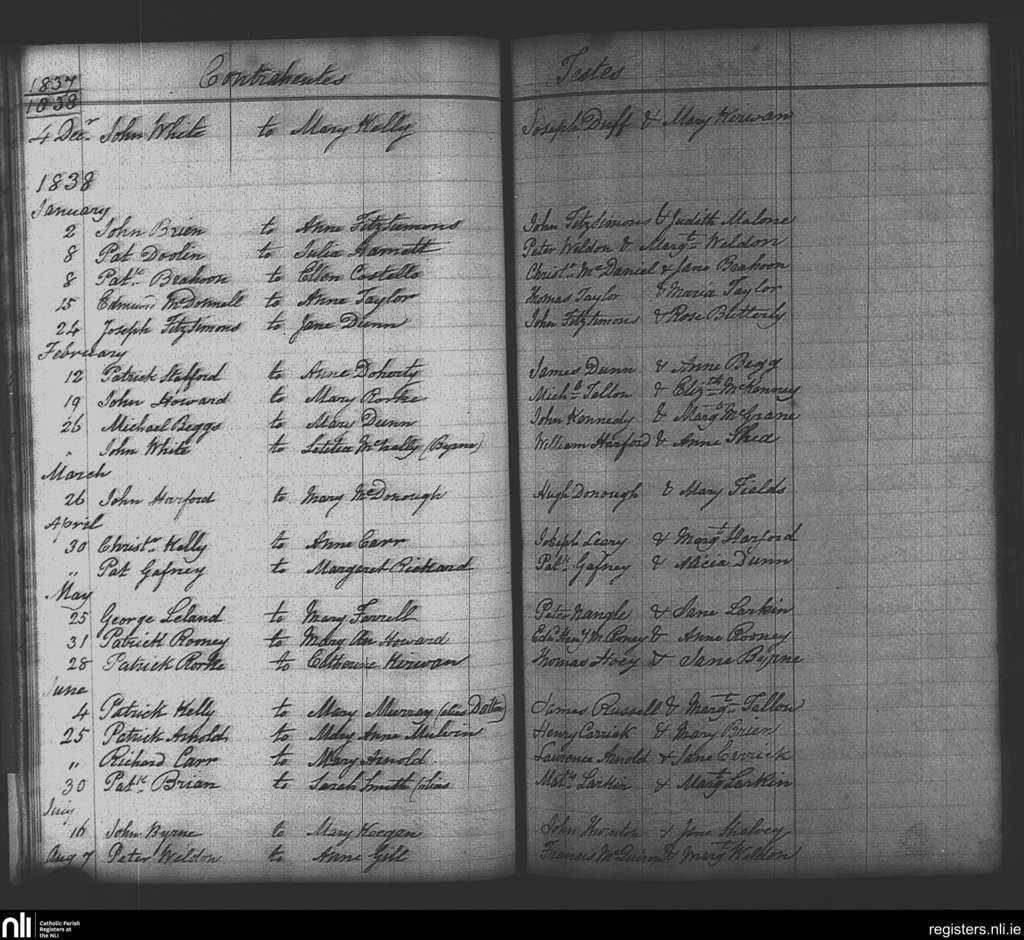 1837 Contrahentes Testes
1838
4 Decr John White to Mary Kelly Joseph Duff & Mary Kirwan
1838
January
2 John Brien to Anne Fitzsimons John Fitzsimons & Judith Malone
8 Pat Doolin to Julia Garrett Peter Weldon & Margt Weldon
8 Patk Beahoon to Ellen Costello Christr McDaniel & Jane Beahoon
15 Edmund McDonnell to Anne Taylor Thomas Taylor & Maria Taylor
24 Joseph Fitzsimons to Jane Dunn John Fitzsimons & Rose Butterly
February
12 Patrick Stafford to Anne Doherty James Dunn & Anne Begg
19 John Howard to Mary Rorke Michl Fallon & Elizth McKenney
26 Michael Beggs to Mary Dunn John Kennedy & Margt McGrane
" John White to Letitia McNally (Byrne) William Harford & Anne Shea
March
26 John Harford to Mary McDonough Hugh Donough & Mary Fields
April
30 Christr Kelly to Anne Carr Joseph Leary & Margt Harford
" Pat Gafney to Margaret Rickard Patk Gafney & Alicia Dunn
May
25 George Leland to Mary Farrell Peter Nangle & Jane Larkin
31 Patrick Rooney to Mary Ann Howard & Anne Rooney
28 Patrick Rorke to Catherine Kirwan Thomas Hoey & Jane Byrne
June
4 Patrick Kelly to Mary Murray (alias Dalton) James Russell & Margt Fallon
25 Patrick Arnold to Mary Anne Mulvin Henry Carrick & Mary Brien
" Richard Carr to Mary Arnold Laurence Arnold & Jane Carrick
30 Patk Brian to Sarah Smith (alias Matw Larkin & Margt Larkin
July
16 John Byrne to Mary Keegan John Thornton & Jane Shalvey
Aug 7 Peter Weldon to Anne Gill Francis & Margt Weldon
nli Catholic Parish Registers at the NLI
registers.nli.ie